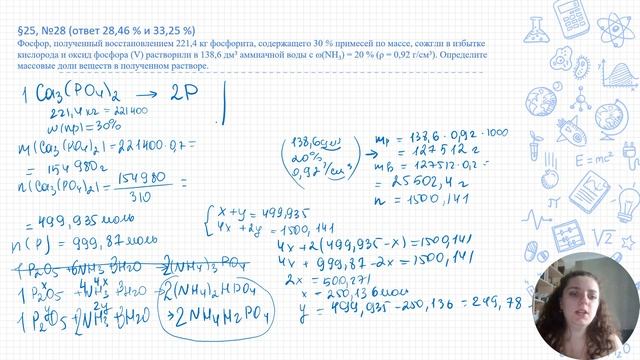 §25, №28 (ответ 28,46 % и 33,25 %)
Фосфор, полученный восстановлением 221,4 кг фосфорита, содержащего 30 % примесей по массе, сожгли в избытке
кислорода и оксид фосфора (V) растворили в 138,6 дм³ аммиачной воды с ω(NH₃) = 20 % (ρ = 0,92 г/см³). Определите
массовые доли веществ в полученном растворе.
1 Ca₃(PO₄)₂ → 2P
221,4 кг = 221400
w(пр) = 30%
m(Ca₃(PO₄)₂) = 221400·0,7 =
= 154 980 г
n(Ca₃(PO₄)₂) = 154980/310 =
= 499,935 моль
n(P) = 999,87 моль
1 P₂O₅ + 6NH₃ 3H₂O → 2(NH₄)₃PO₄
1 P₂O₅ 4NH₃ 3H₂O → 2(NH₄)₂HPO₄
x 4x
1 P₂O₅ 2NH₃ 3H₂O → 2NH₄H₂PO₄
y 2y
138,6 дм³
20%
0,92 г/см³
mр = 138,6·0,92·1000
= 127512 г
mв = 127512·0,2 =
= 25502,4 г
n = 1500,141
x + y = 499,935
4x + 2y = 1500,141
4x + 2(499,935 - x) = 1500,141
4x + 999,87 - 2x = 1500,141
2x = 500,271
x = 250,136 моль
y = 499,935 - 250,136 = 249,78
E=mc²
√2